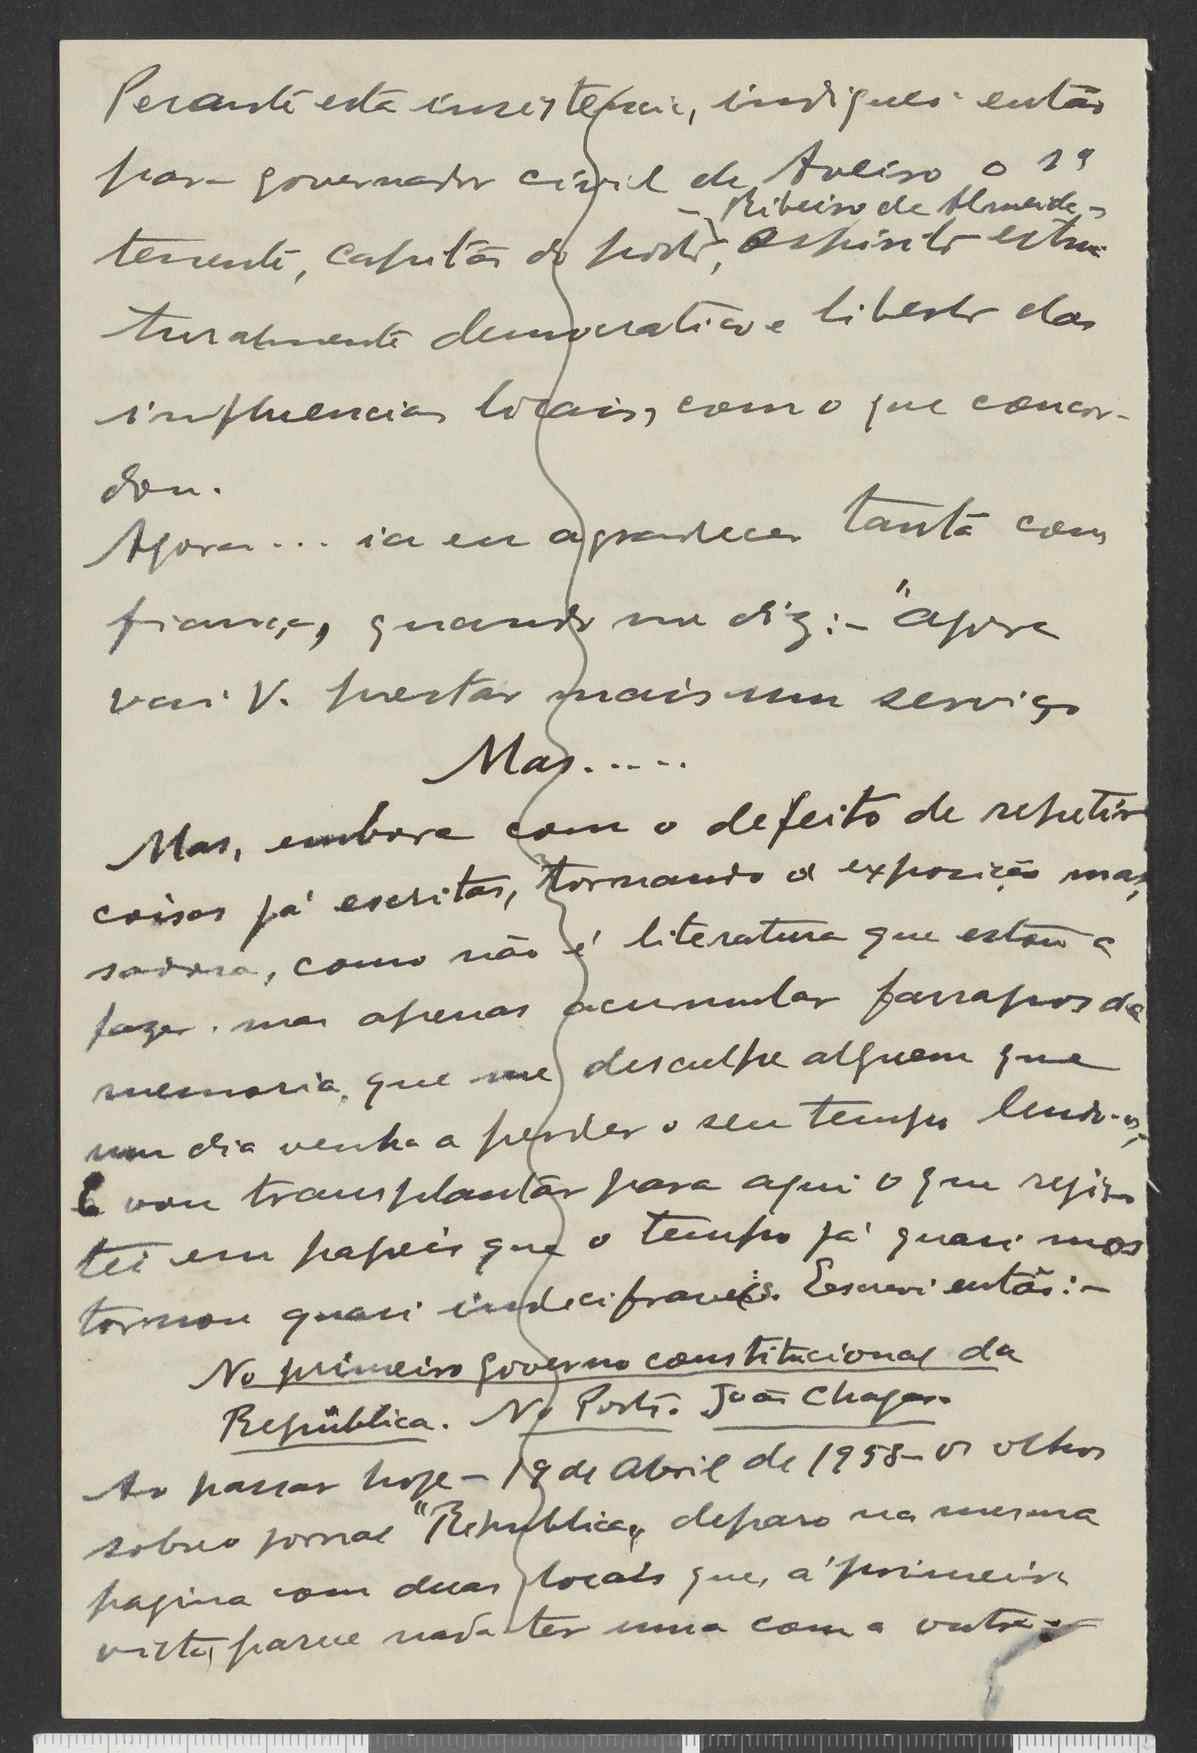 Perante esta insistencia, indiquei então
para governador civil de Aveiro o 1º
- Ribeiro de Almeida -
tenente, capitão do porto, espirito estru-
turalmente democratico e liberto das
influencias locais, com o que concor-
dou.
Agora... ia eu agradecer tanta con
fiança, quando me diz:- "agora
vai V. prestar mais um serviço
Mas.....
Mas, embora com o defeito de repetir
coisas já escritas, tornando a exposição mas,
sadora, como não é literatura que estou a
fazer. mas apenas acumular farrapos da
memoria, que me desculpe alguem que
um dia venha a perder o seu tempo lendo-os,
E vou transplantar para aqui o que regis-
tei em papeis que o tempo já quasi
tornou quasi indecifraveis. Escrevi então:-
No primeiro governo constitucional da
República. No Porto. João Chagas.
Ao passar hoje - 19 de Abril de 1958 - os olhos
sobre o jornal "Republica", deparo na mesma
pagina com duas locais que, á primeira
vista, parece nada ter uma com a outra:-